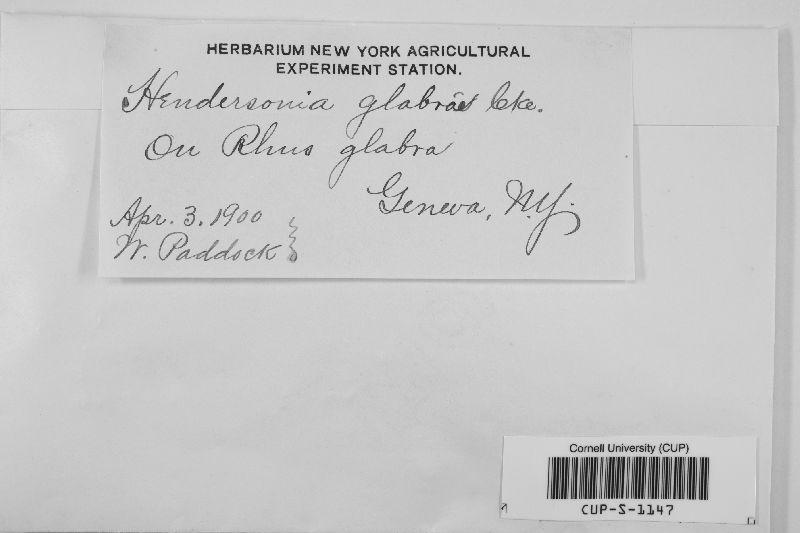 HERBARIUM NEW YORK AGRICULTURAL
EXPERIMENT STATION.
Hendersonia Cke.
On Rhus glabra
Geneva, N.Y.
Apr. 3. 1900
W. Paddock
Cornell University (CUP)
CUP-S-1147